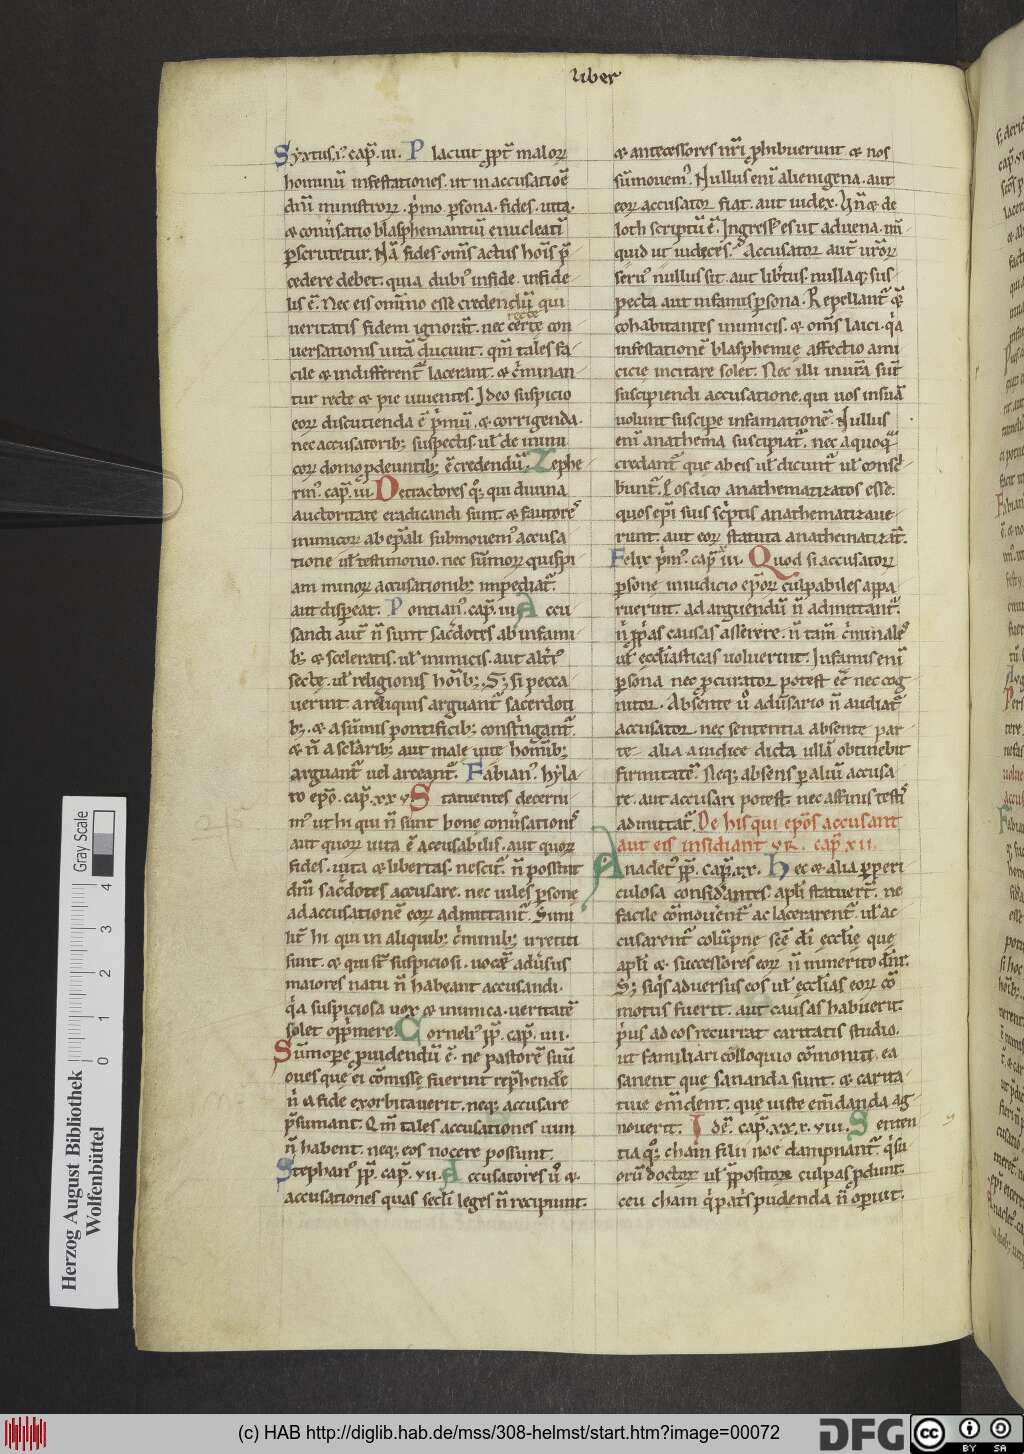 Liber
Syxtus .i. cap̄. iii. Placuit ꝓpt̄ maloꝝ
hominū infestationes. ut in accusatiōē
dn̄i ministroꝝ. p̍mo ꝑsona. fides. uita.
& conu̍satio blasphemantiū enucleati᷑
ꝑscrutetur. Nā fides om̄s actus hoīs p̄
cedere debet. quia dubi᷒ in fide. infide
lis ē. Nec eis om̄ino esse credendū qui
ueritatis fidem ignorāt. nec certe con
recte
uersationis uitā ducunt. qm̄ tales fa
cile & indifferent̄ lacerant. & c̍minan
tur recte & pie uiuentes. Ideo suspicio
eoꝝ discutienda ē p̍mū. & corrigenda.
nec accusatorib; suspectis. ul̄ de inimi
coꝝ domo ꝓdeuntib; ē credendū. Zephe
rin᷒. cap̄. iii. Detractores qͦ; qui diuina
auctoritate eradicandi sunt. & fautores
inimicoꝝ ab ep̄ali submouem᷒ accusa
tione ul̄ testimonio. nec sūmoꝝ quispi
am minoꝝ accusationib; impediat᷑.
aut dispeat. Pontian᷒. cap̄. iii. Accu
sandi aut̄ n̄ sunt sac̍dotes ab infami
b; & sceleratis. ul̄ inimicis. aut alt̍i᷒
sectę. ul̄ religionis hoīb;. S; si pecca
uerint a reliquis arguant᷑ sacerdoti
b;. & a sūmis pontificib; const̍ngant᷑.
& n̄ a sclarib; aut male uite hom̄ib;
arguant᷑ uel arceant᷑. Fabian᷒. hyla
rio ep̄o. cap̄. xxv. Statuentes decerni
m᷒ ut hi qui n̄ sunt bone conu̍sationis
aut quoꝝ uita ē accusabilis. aut quoꝝ
fides. uita & libertas. nescit᷑. n̄ possint
dn̄i sac̍dotes accusare. nec uiles ꝑsone
ad accusationē eoꝝ admittant᷑. Simi
lit̄ hi qui in aliquib; c̍minib; irretiti
sunt. & qui st̄ suspiciosi. uocē adu̍sus
maiores natu n̄ habeant accusandi.
q̍a suspiciosa uox & inimica. ueritatē
solet opp̍mere. Corneli᷒ pp̄. cap̄. iiii.
Sūmope ꝓuidendū ē. ne pastorē suū
oues quę ei cōmissę fuerint rep̍hendere
n̍ a fide exorbitauerit. neq; accusare
p̄sumant. Qm̄ tales accusationes uim
n̄ habent. neq; eos nocere possunt.
Stephan᷒ pp̄. cap̄. vii. Accusatores u̍o &
accusationes quas sect̄i leges n̄ recipiunt.
& antecessores nr̄i ꝓhibuerunt & nos
sūmouem᷒. Nullus enī alienigena. aut
eoꝝ accusator fiat. aut iudex. Vn̄ & de
loth scriptū ē. Ingressus es ut aduena. nū
quid ut iudices. Accusator aut̄ ur̄oꝝ
seru᷒ nullus sit. aut lib̍tus. nullaq; sus
pecta aut infamis ꝑsona. Repellant᷑ q̄
cohabitantes inimicis. & om̄s laici. q̍a
infestationē blasphemię affectio ami
cicię incitare solet. Nec illi in ur̄a sūt
suscipiendi accusatione. qui uos in suā
uolunt suscipe infamationē. Nullus
enī anathema suscipiat᷑. nec a quoq̄
credant᷑ que ab eis ul̄ dicunt᷑ ul̄ conscri
bunt᷑. Eos dico anathematizatos esse.
quos ep̄i suis sc̍ptis anathematizaue
runt. aut eoꝝ statuta anathematizāt.
Felix p̍m᷒. cap̄. iii. Quod si accusatoꝝ
ꝑsone in iudicio ep̄oꝝ culpabiles appa
ruerint. ad arguendū n̄ admittant᷑.
n̍ ꝓp̍as causas asserere. n̄ tam̄ c̍minales
ul̄ ecclīasticas uoluerint. Infamis enī
ꝑsona nec ꝓcurator potest eē nec cog
nitor. Absente u̍o adu̍sario n̄ audiat᷑
accusator. nec sententia absente par
te alia a iudice dicta ullā obtinebit
firmitatē. Neq; absens ꝑ aliū accusa
re. aut accusari potest. nec affinis testis
admittat᷑. De his qui ep̄os accusant
aut eis insidiant᷑. cap̄. xii.
Anaclet᷒ pp̄. cap̄. xx. Hec & alia ꝑperi
culosa considerantes. apl̄i statuerī. ne
facile cōmouerent᷑ ac lacerarent᷑. ul̄ ac
cusarent᷑ colūpne scē dī ecclīe que
apl̄i & successores eoꝝ n̄ inmerito dn̄r.
S; siq̍s aduersus eos ul̄ ecclīas eoꝝ cō
motus fuerit. aut causas habuerit.
p̍us ad eos recurrat caritatis studio.
ut familiari colloquio cōmoniti. ea
sanent que sananda sunt. & carita
tiue em̄dent. que iuste em̄danda ag
nouerit. Idē. cap̄. xxx. viii. Senten
tia qͦ; cham filii noe dampnant᷑. q̍ su
orū doctoꝝ ul̄ ꝓpositoꝝ culpas ꝓdunt.
ceu cham q̍ pat̍s pudenda n̄ operuit.
Gray Scale
4
3
2
1
0
Herzog August Bibliothek
Wolfenbüttel
(c) HAB http://diglib.hab.de/mss/308-helmst/start.htm?image=00072
DFG
cc
BY
SA